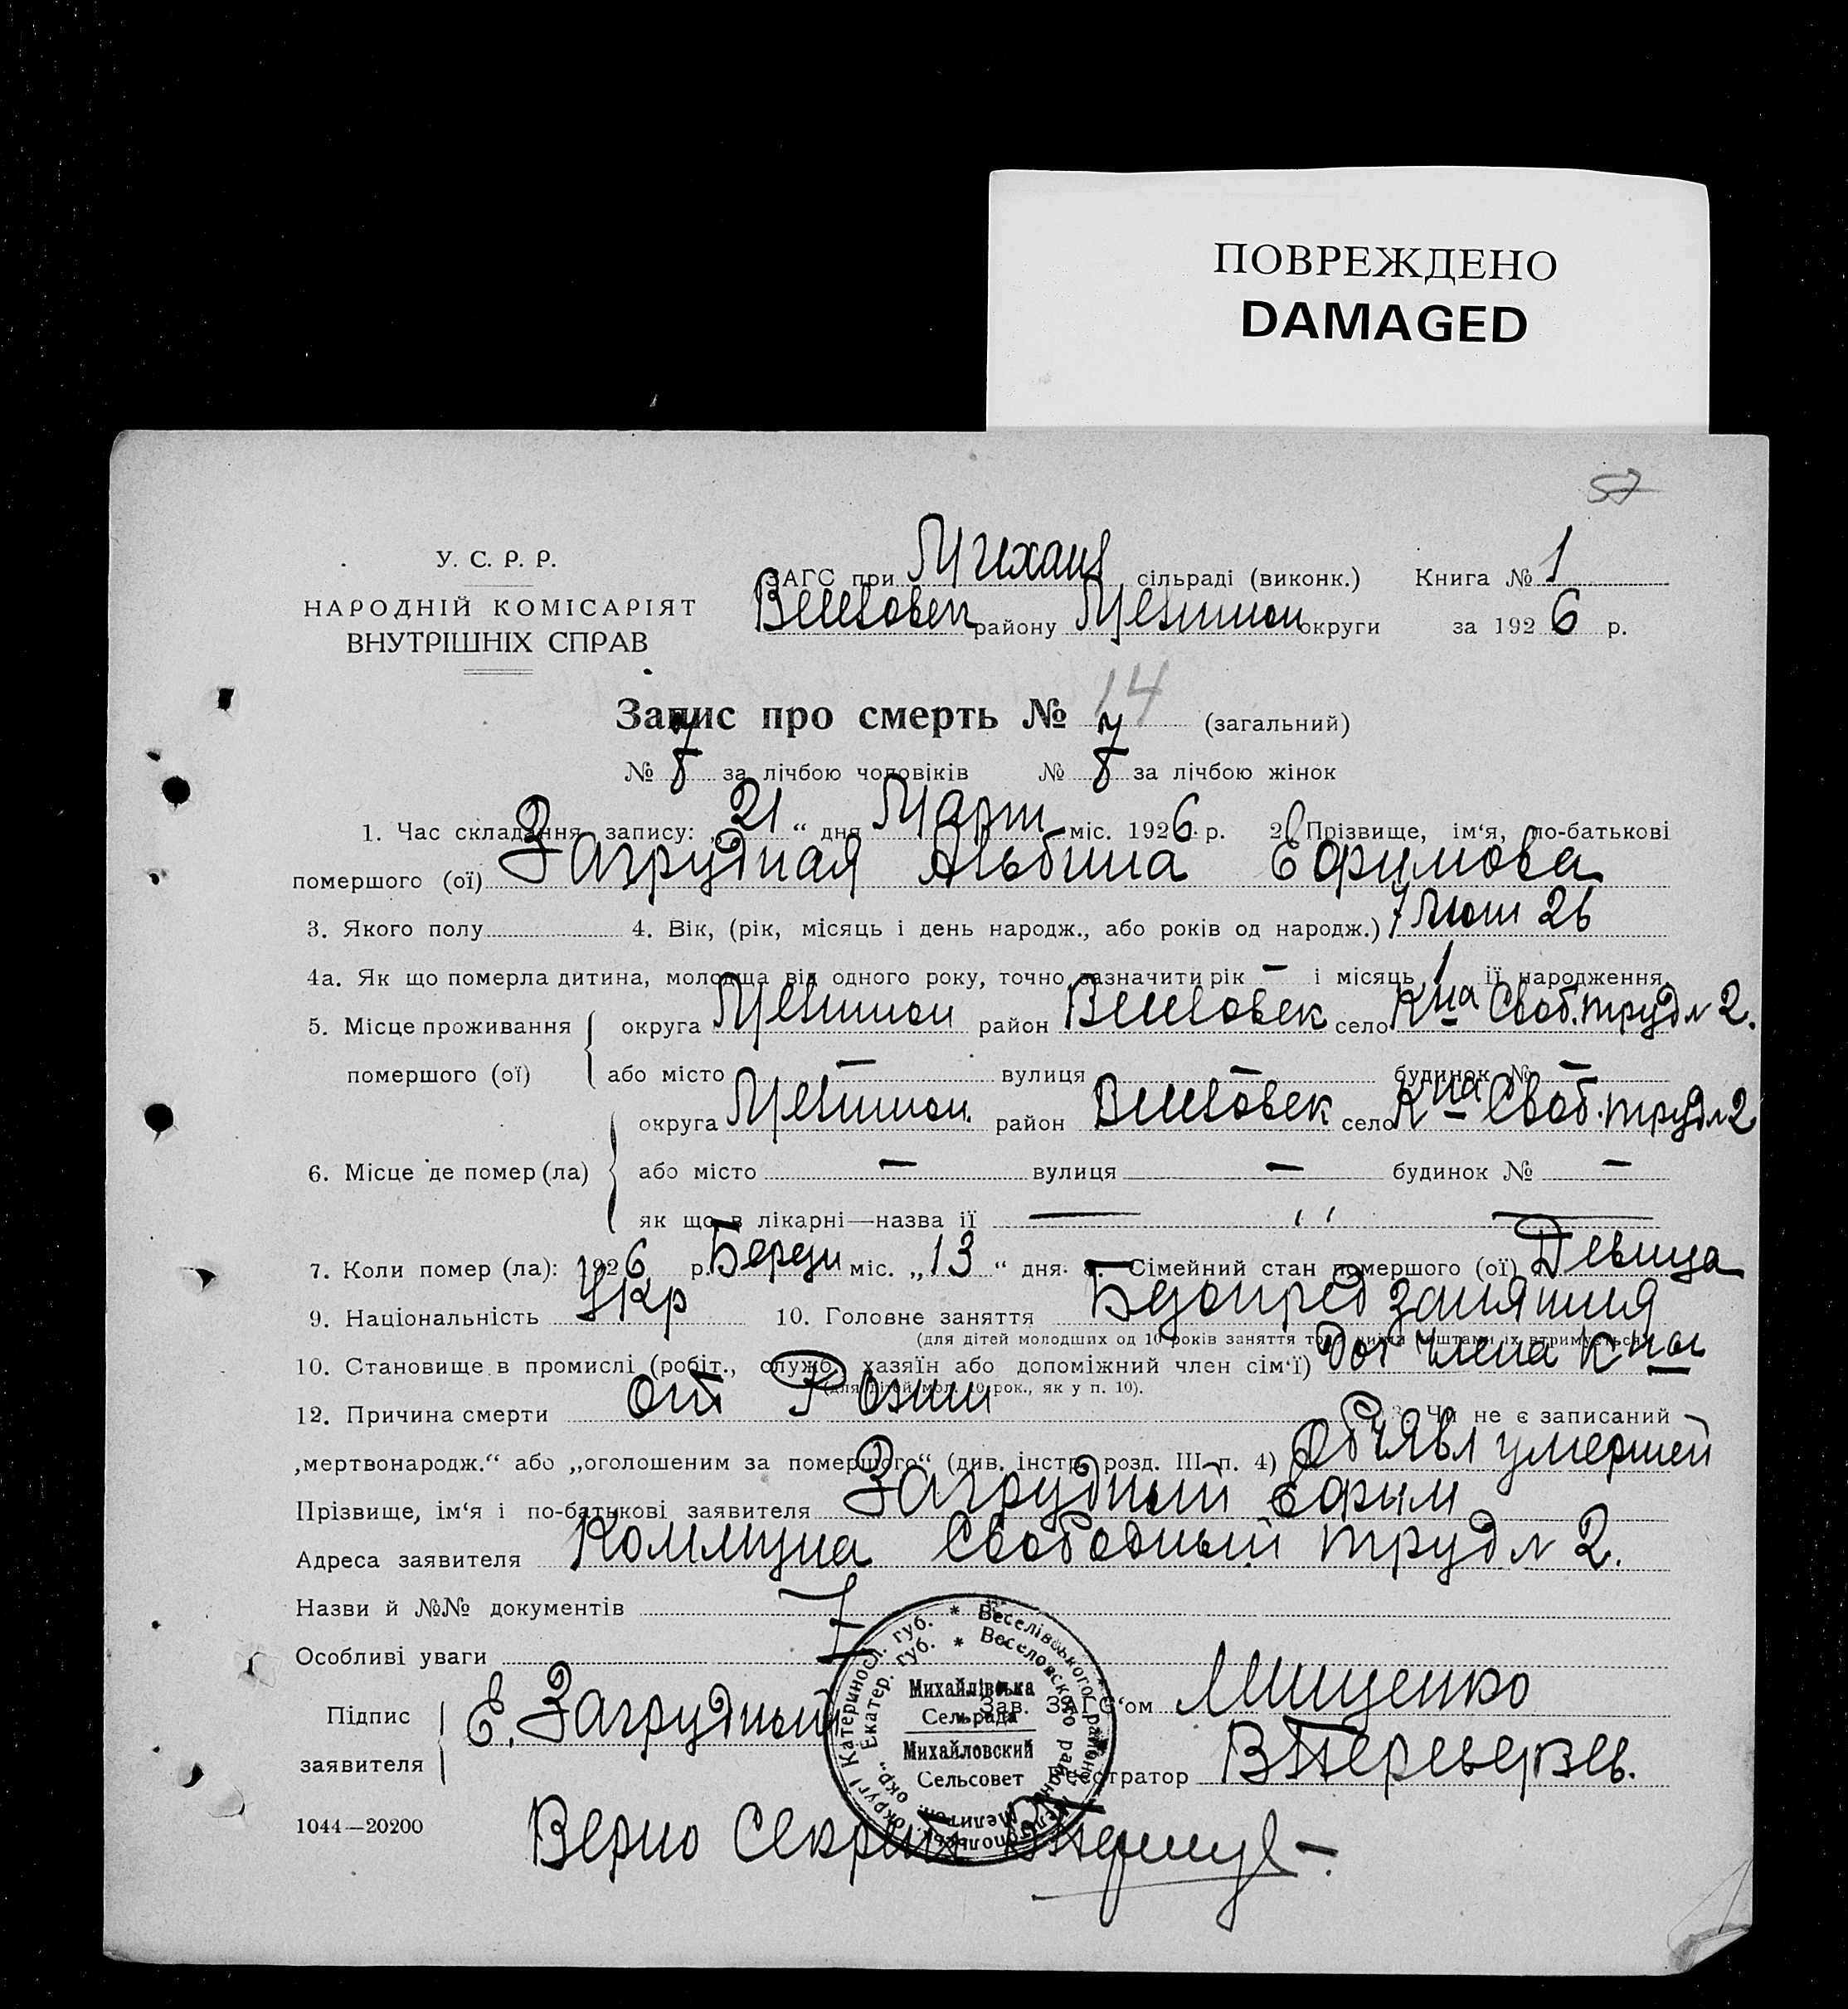 ПОВРЕЖДЕНО
DAMAGED
57
У. С. Р. Р.
НАРОДНІЙ КОМІСАРІЯТ
ВНУТРІШНІХ СПРАВ
ЗАГС при Михайл сільраді (виконк.) Книга № 1
району Мелитоп округи за 1926 р.
Запис про смерть № 14 (загальний)
№ за лічбою чоловіків № за лічбою жінок
1. Час складання запису: „21“ дня Март міс. 1926 р. 2. Прізвище, ім‘я, по-батькові
помершого (ої) Загрудная Альбина Ефимова
3. Якого полу 4. Вік, (рік, місяць і день народж., або років од народж.) 7 Лют 26
4а. Як що померла дитина, молодща від одного року, точно зазначити рік — і місяць 1 її народження.
5. Місце проживання округа Мелитоп район село К-на Своб. труд № 2.
помершого (ої) або місто — вулиця — будинок № —
округа Мелитоп. район село К-на Своб. труд № 2
6. Місце де помер (ла) або місто — вулиця — будинок № —
як що в лікарні—назва її — „ —
7. Коли помер (ла): 1926 р. Берез міс. „13“ дня. 8. Сімейний стан помершого (ої) Девица
9. Національність Укр 10. Головне заняття Безопред занятия
(для дітей молодших од 10 років заняття того, чиїми коштами їх втримується)
10. Становище в промислі (робіт., служб., хазяїн або допоміжний член сім‘ї) доч члена к-ны
(для дітей мол. 10 рок., як у п. 10).
12. Причина смерти от 13. Чи не є записаний
„мертвонародж.“ або „оголошеним за помершого“ (див. інстр. розд. III п. 4) Объявл умершей
Прізвище, ім‘я і по-батькові заявителя Загрудный Ефим
Адреса заявителя Коммуна Свободный труд № 2.
Назви й №№ документів
Особливі уваги
Підпис заявителя Е. Загрудный Зав. ЗАГС‘ом Мищенко
Реєстратор
Веселівського району Мелітопольськ. округи Катеринosл. губ.
Веселовского района Мелитоп. окр., Екатер. губ.
Михайлівська
Сельрада
Михайловский
Сельсовет
1044—20200
Верно Секрет